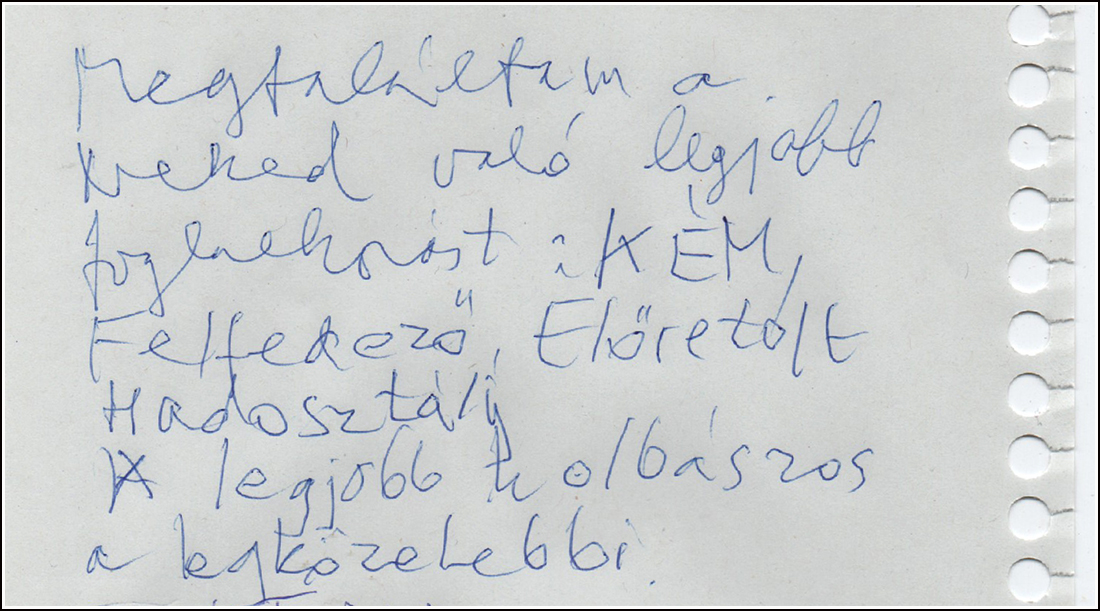 Megtaláltam a
neked való legjobb
foglalkozást: KÉM,
Felfedező, Előretolt
Hadosztály
A legjobb kolbászos
a legközelebbi.